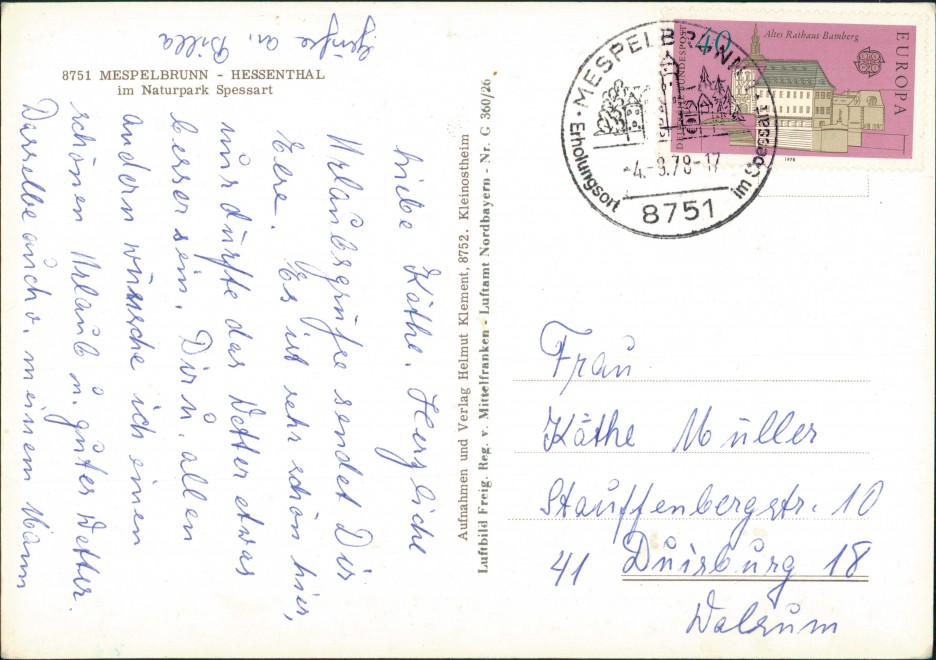 8751 MESPELBRUNN - HESSENTHAL
im Naturpark Spessart
Liebe Käthe. Herzliche
Urlaubsgrüße sendet Dir
Eere. Es ist sehr schön hier,
nur dürfte das Wetter etwas
besser sein. Dir u. allen
andern wünsche ich einen
schönen Urlaub u. gutes Wetter.
Dasselbe auch v. meinem Mann
Grüße an Billa
Aufnahmen und Verlag Helmut Klement, 8752. Kleinostheim
Luftbild Freig. Reg. v. Mittelfranken - Luftamt Nordbayern - Nr. G 360/26
MESPELBRUNN
Erholungsort
im Spessart
-4.-9.78-17
8751
40
Altes Rathaus Bamberg
EUROPA
DEUTSCHE BUNDESPOST
1978
Frau
Käthe Müller
Stauffenbergstr. 10
41 Duisburg 18
Walsum